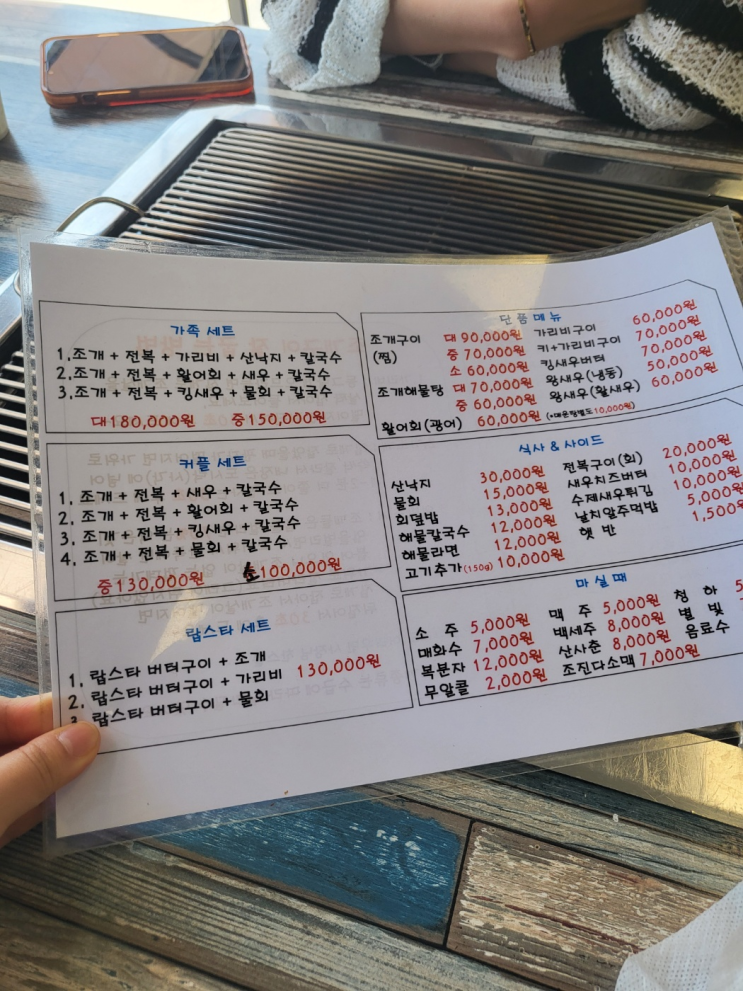 가족 세트
1.조개 + 전복 + 가리비 + 산낙지 + 칼국수
2.조개 + 전복 + 활어회 + 새우 + 칼국수
3.조개 + 전복 + 킹새우 + 물회 + 칼국수
대180,000원 중150,000원
커플 세트
1. 조개 + 전복 + 새우 + 칼국수
2. 조개 + 전복 + 활어회 + 칼국수
3. 조개 + 전복 + 킹새우 + 칼국수
4. 조개 + 전복 + 물회 + 칼국수
중130,000원 소100,000원
랍스타 세트
1. 랍스타 버터구이 + 조개
2. 랍스타 버터구이 + 가리비 130,000원
3. 랍스타 버터구이 + 물회
단품메뉴
조개구이 대 90,000원 가리비구이 60,000원
(찜) 중 70,000원 키+가리비구이 70,000원
소 60,000원 킹새우버터 70,000원
조개해물탕 대 70,000원 왕새우(냉동) 50,000원
중 60,000원 왕새우(활새우) 60,000원
활어회(광어) 60,000원 (*매운탕별도10,000원)
식사 & 사이드
산낙지 30,000원 전복구이(회) 20,000원
물회 15,000원 새우치즈버터 10,000원
회덮밥 13,000원 수제새우튀김 10,000원
해물칼국수 12,000원 날치알주먹밥 5,000원
해물라면 12,000원 햇반 1,500
고기추가(150g) 10,000원
마실때
소 주 5,000원 맥 주 5,000원 청 하 5
매화수 7,000원 백세주 8,000원 별 빛
복분자 12,000원 산사춘 8,000원 음료수
무알콜 2,000원 조진다소맥 7,000원